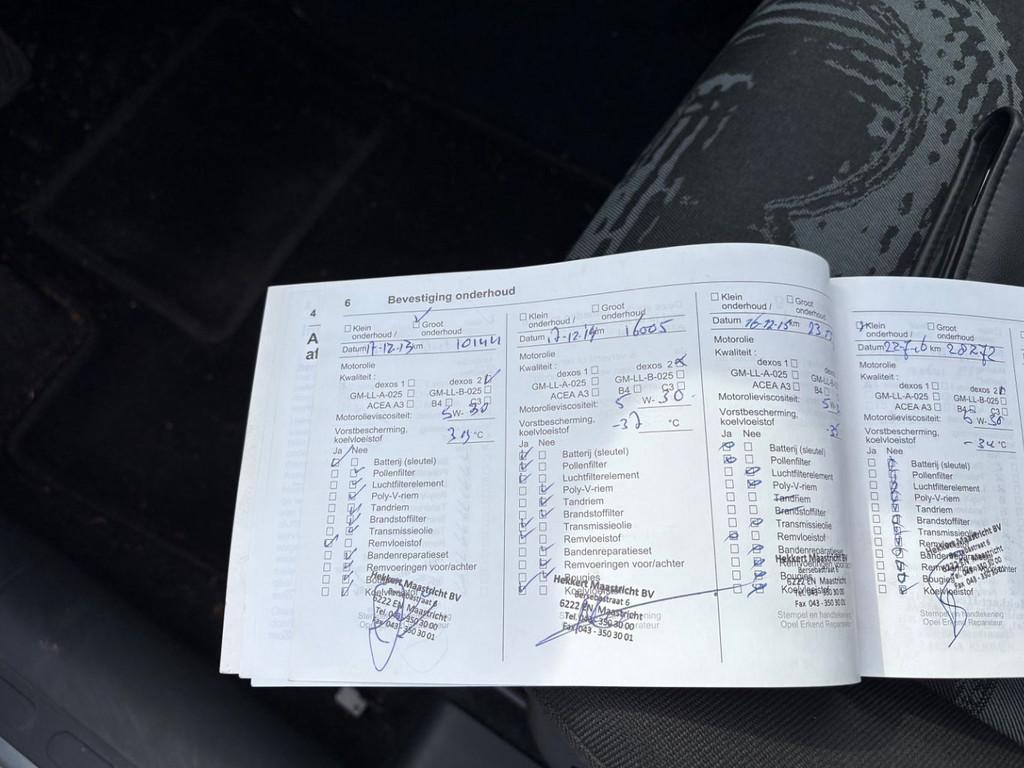 4
A
af
6 Bevestiging onderhoud
☐ Klein onderhoud / ☐ Groot onderhoud
Datum 17-12-13 km
Motorolie
Kwaliteit :
dexos 1 ☐ dexos 2 ☑
GM-LL-A-025 ☐ GM-LL-B-025 ☐
ACEA A3 ☐ B4 ☐ C3 ☐
Motorolieviscositeit: 5 W- 30
Vorstbescherming,
koelvloeistof °C
Ja Nee
Batterij (sleutel)
Pollenfilter
Luchtfilterelement
Poly-V-riem
Tandriem
Brandstoffilter
Transmissieolie
Remvloeistof
Bandenreparatieset
Remvoeringen voor/achter
Koelvloeistof
Hekkert Maastricht BV
Bersebastraat 6
6222 EN Maastricht
Tel. 043 - 350 30 00
Fax 043 - 350 30 01
☐ Klein onderhoud / ☐ Groot onderhoud
Datum 17-12-14 km 16005
Motorolie
Kwaliteit :
dexos 1 ☐ dexos 2 ☒
GM-LL-A-025 ☐ GM-LL-B-025 ☐
ACEA A3 ☐ B4 ☐ C3 ☐
Motorolieviscositeit: 5 W- 30
Vorstbescherming,
koelvloeistof -37 °C
Ja Nee
Batterij (sleutel)
Pollenfilter
Luchtfilterelement
Poly-V-riem
Tandriem
Brandstoffilter
Transmissieolie
Remvloeistof
Bandenreparatieset
Remvoeringen voor/achter
Bougies
Koelvloeistof
Hekkert Maastricht BV
Bersebastraat 6
6222 EN Maastricht
Tel. 043 - 350 30 00
Fax 043 - 350 30 01
☐ Klein onderhoud / ☐ Groot onderhoud
Datum 16-12-15 km
Motorolie
Kwaliteit :
dexos 1 ☐
GM-LL-A-025 ☐
ACEA A3 ☐
Motorolieviscositeit: 5
Vorstbescherming,
koelvloeistof
Ja Nee
Batterij (sleutel)
Pollenfilter
Luchtfilterelement
Poly-V-riem
Tandriem
Brandstoffilter
Transmissieolie
Remvloeistof
Bandenreparatieset
Bougies
Koelvloeistof
Hekkert Maastricht BV
Bersebastraat 6
6222 EN Maastricht
Tel. 043 - 350 30 00
Fax 043 - 350 30 01
Stempel en handtekening
Opel Erkend Reparateur
Klein onderhoud / ☐ Groot onderhoud
Datum km 28272
Motorolie
Kwaliteit :
dexos 1 ☐ dexos 2
GM-LL-A-025 ☐ GM-LL-B-025 ☐
ACEA A3 ☐ B4 ☐ C3 ☐
Motorolieviscositeit: 5 W- 30
Vorstbescherming,
koelvloeistof -34 °C
Ja Nee
Batterij (sleutel)
Pollenfilter
Luchtfilterelement
Poly-V-riem
Tandriem
Brandstoffilter
Transmissieolie
Bougies
Hekkert Maastricht BV
Bersebastraat 6
6222 EN Maastricht
Tel. 043 - 350 30 00
Fax 043 - 350 30 01
Opel Erkend Reparateur